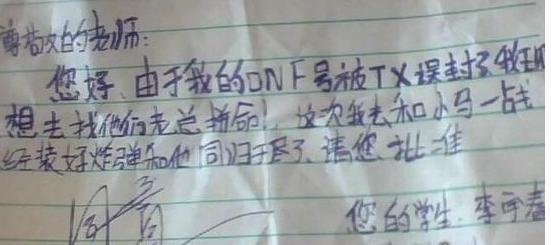 尊敬的老师:
您好,由于我的DNF号被TX误封了我现
想去找他们老总拼命!这次我去和小马一战
经装好炸弹和他同归于尽了,请您批准
您的学生.李宇春